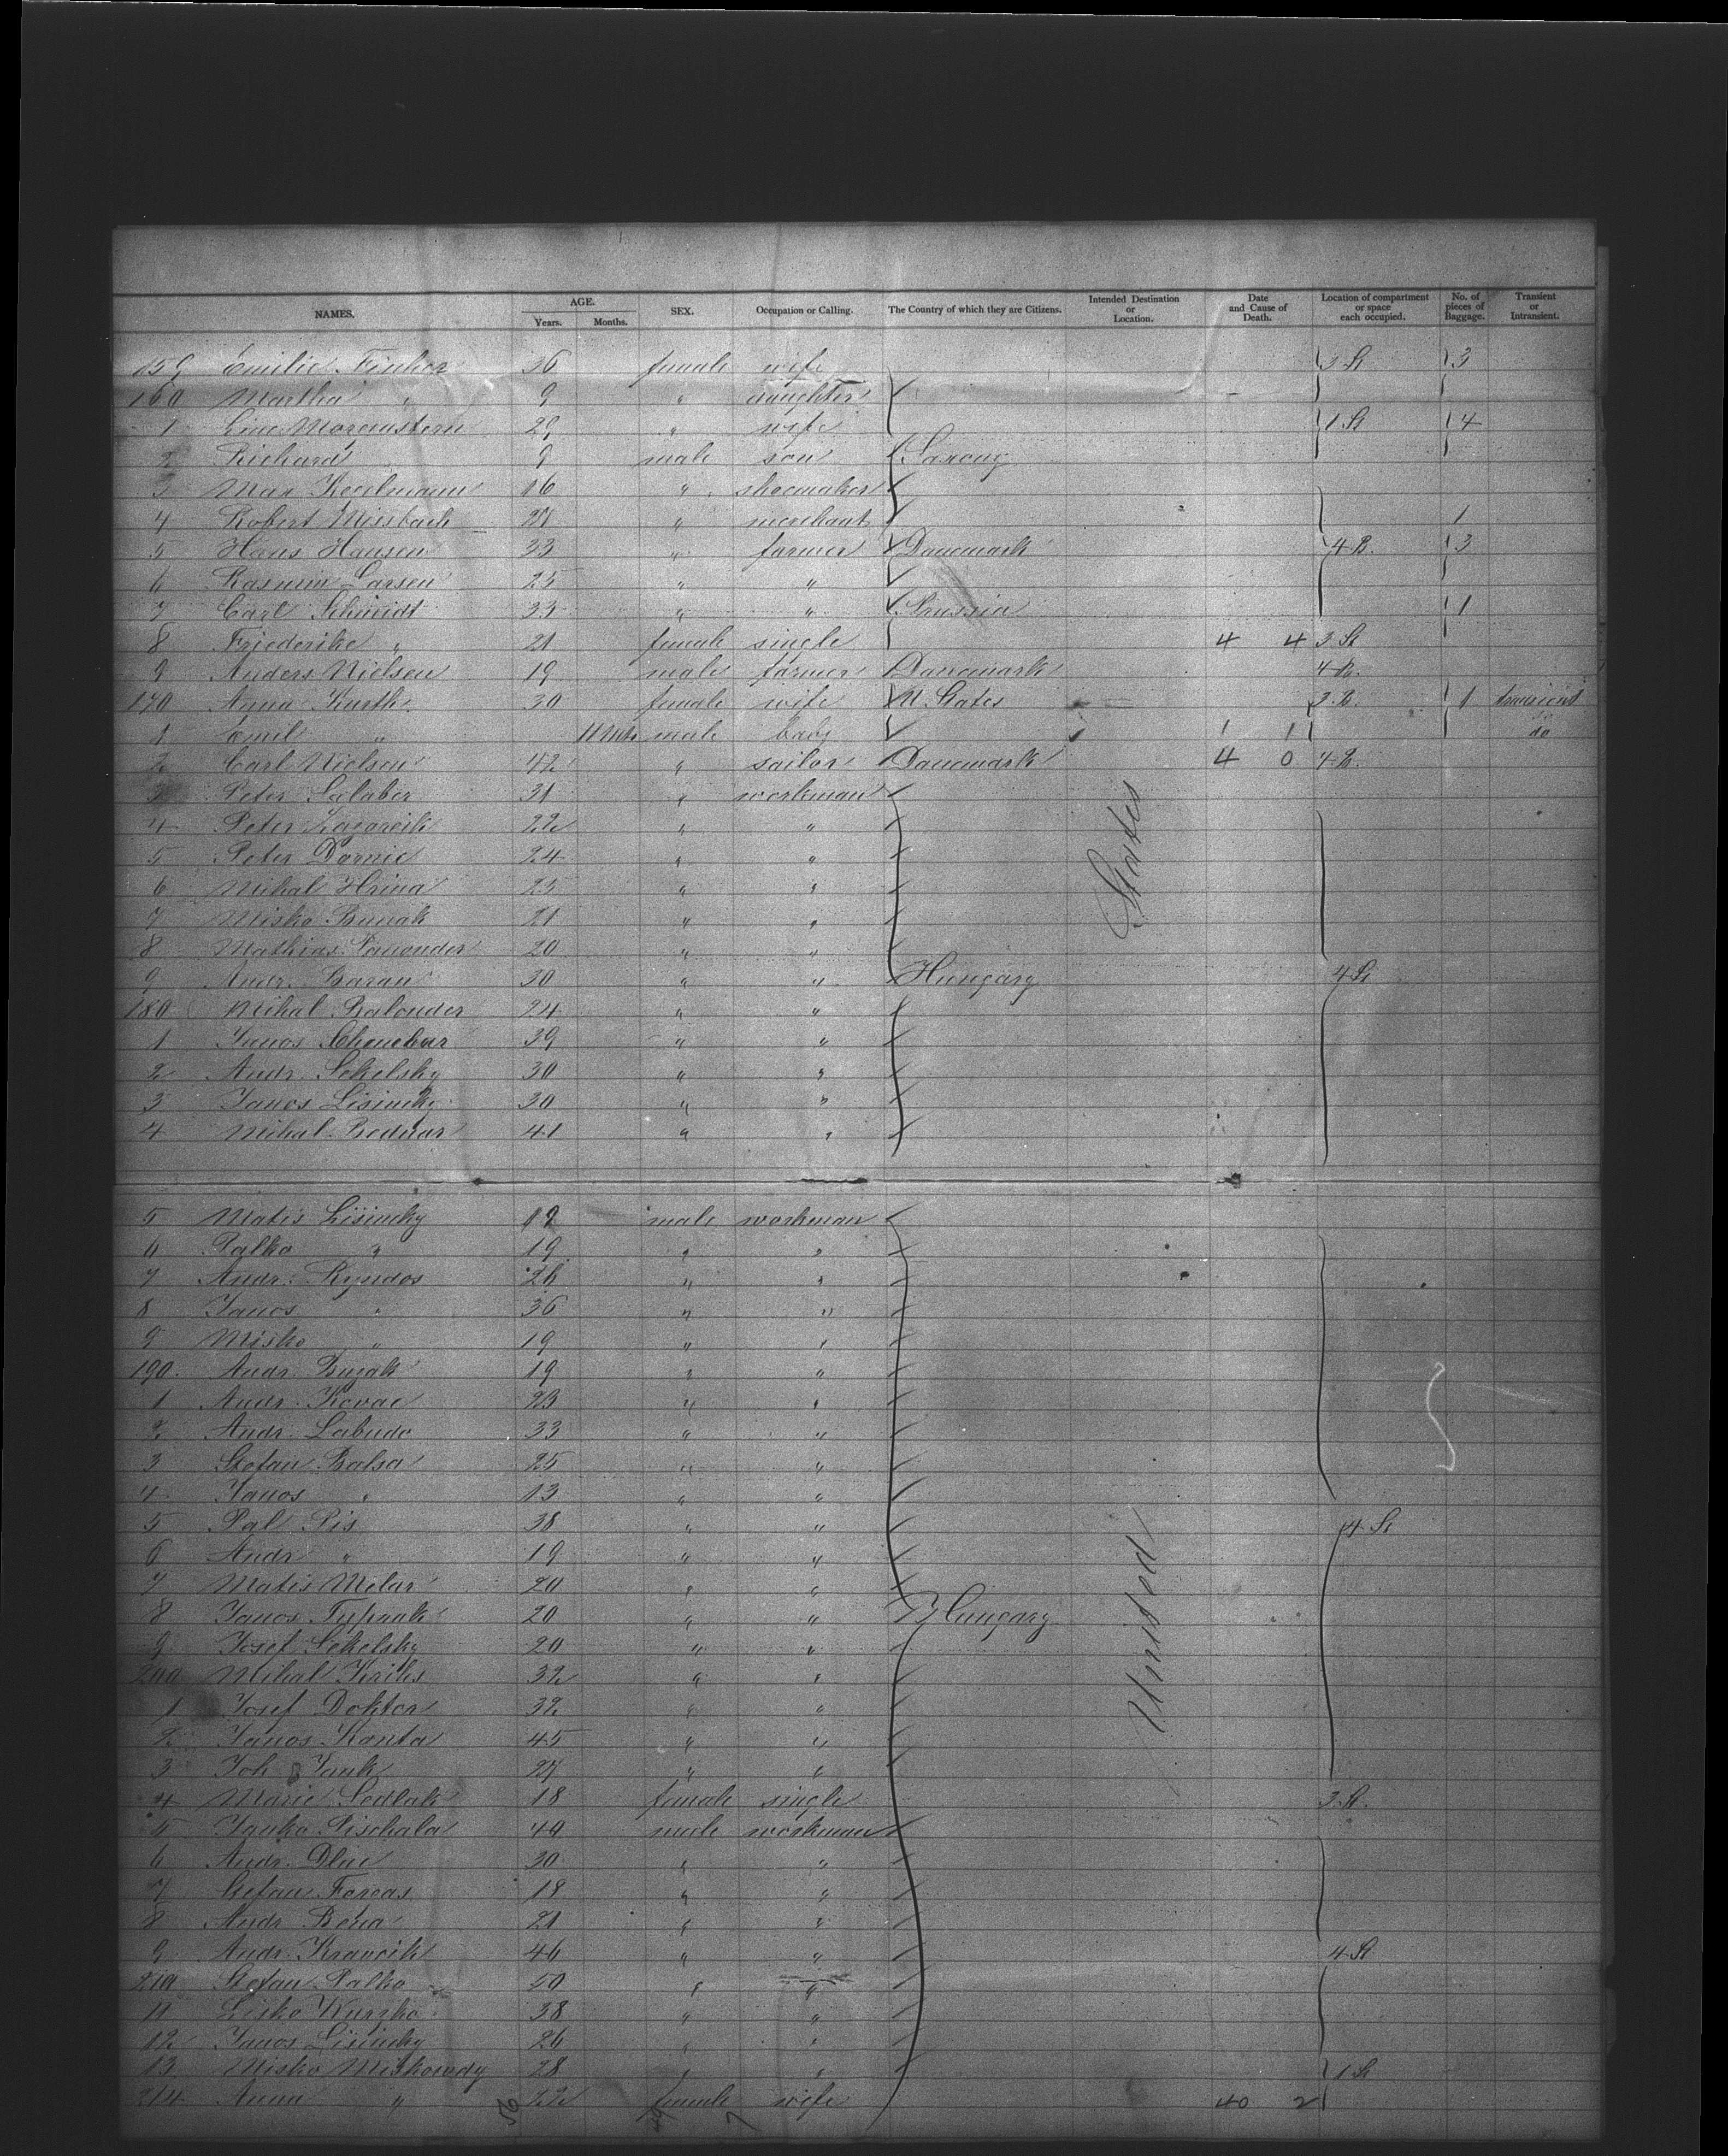 NAMES. AGE. Years. Months. SEX. Occupation or Calling. The Country of which they are Citizens. Intended Destination or Location. Date and Cause of Death. Location of compartment or space each occupied. No. of pieces of Baggage. Transient or Intransient.
159 Emilie Fischer 36 female wife 3 St 3
160 Martha " 9 " daughter
1 Line Morgenstern 29 " wife 1 St 4
2 Richard " 9 male son Saxony
3 Max 16 " shoemaker
4 Robert Missbach 21 " merchant 1
5 Hans Hansen 33 " farmer Danemark 4 B. 3
6 Larsen 25 " "
7 Carl Schmidt 33 " " Prussia 1
8 Friederike " 21 female single 4 4 3 St
9 Anders Nielsen 19 male farmer Danemark 4 B.
170 Anna Kurth 30 female wife U. States 3 B. 1 transient
1 Emil " 11 Mth male baby 1 1 do
2 Carl Nielsen 42 " sailor Danemark 4 0 4 B.
3 Peter Salaber 31 " workman
4 Peter 22 " "
5 Peter Dornic 24 " "
6 Mihal Hrina 25 " "
7 Misko 21 " "
8 Mathias 20 " "
9 Andr. Baran 30 " " Hungary 4 St
180 Mihal Balonder 24 " "
1 Janos 39 " "
2 Andr. Sekelsky 30 " "
3 Janos Lisinsky 30 " "
4 Mihal Bednar 41 " "
5 Matis Lisinsky 19 male workman
6 Palko " 19 " "
7 Andr. Ryndos 26 " "
8 Janos " 36 " "
9 Misko " 19 " "
190 Andr. Bujak 19 " "
1 Andr. Kovac 23 " "
2 Andr. Labudo 33 " "
3 Stefan Balsa 25 " "
4 Janos " 13 " "
5 Pal Pis 38 " " 4 St
6 Andr " 19 " "
7 Matis Milar 20 " "
8 Janos 20 " " Hungary
9 Josef Sekelsky 20 " "
200 Mihal 32 " "
1 Josef Doktor 32 " "
2 Janos Konta 45 " "
3 Joh. Jank 27 " "
4 Marie Sedlak 18 female single 3 St.
5 Janko Pischala 40 male workman
6 Andr. Dluc 30 " "
7 Stefan Forgas 18 " "
8 Andr. Bena 21 " "
9 Andr. Kravcik 46 " " 4 St
210 Stefan Palko 50 " "
11 38 " "
12 Janos Lisinsky 26 " "
13 Misko 28 " " 1 St
214 Anna " 22 female wife 40 2
United States
56 49 7